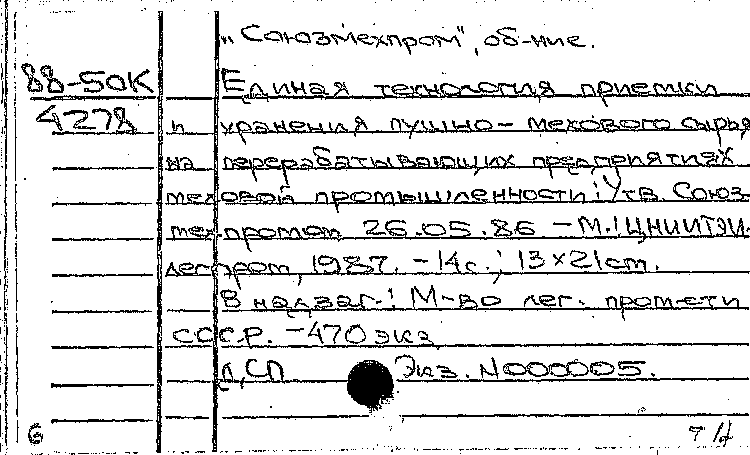 „Союзмехпром", об-ние.
88-50К Единая технология приемки
4278 и хранения пушно-мехового сырья
на перерабатывающих предприятиях
меховой промышленности: Утв. Союз-
мехпромом 26.05.86 – М.: ЦНИИТЭИ-
легпром, 1987. – 14с.; 13×21cm.
В надзаг.: М-во лег. пром-сти
СССР. – 470 экз
Д, СП Экз. N000005.
6